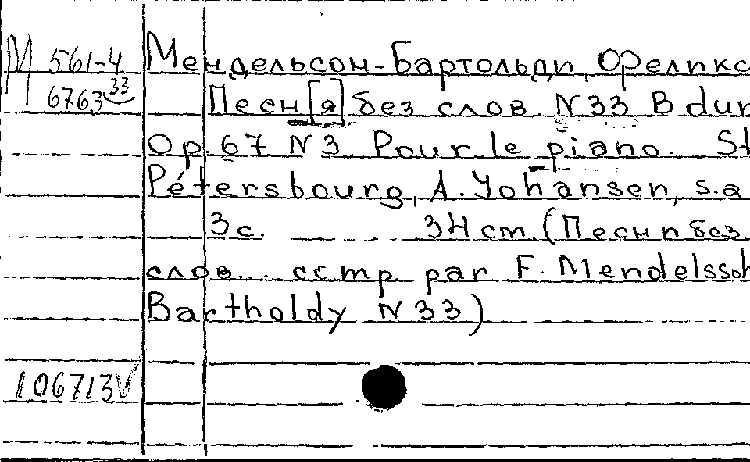 М 561-4 Мендельсон-Бартольди, Феликс
6763 33 Песн[я] без слов N 33 B dur
Op. 67 N 3 Pour le piano. St
Pétersbourg, A. Johansen, s.a
3 с. 34 cm (Песни без
слов comp par F. Mendelssoh
Bartholdy N 33)
106713